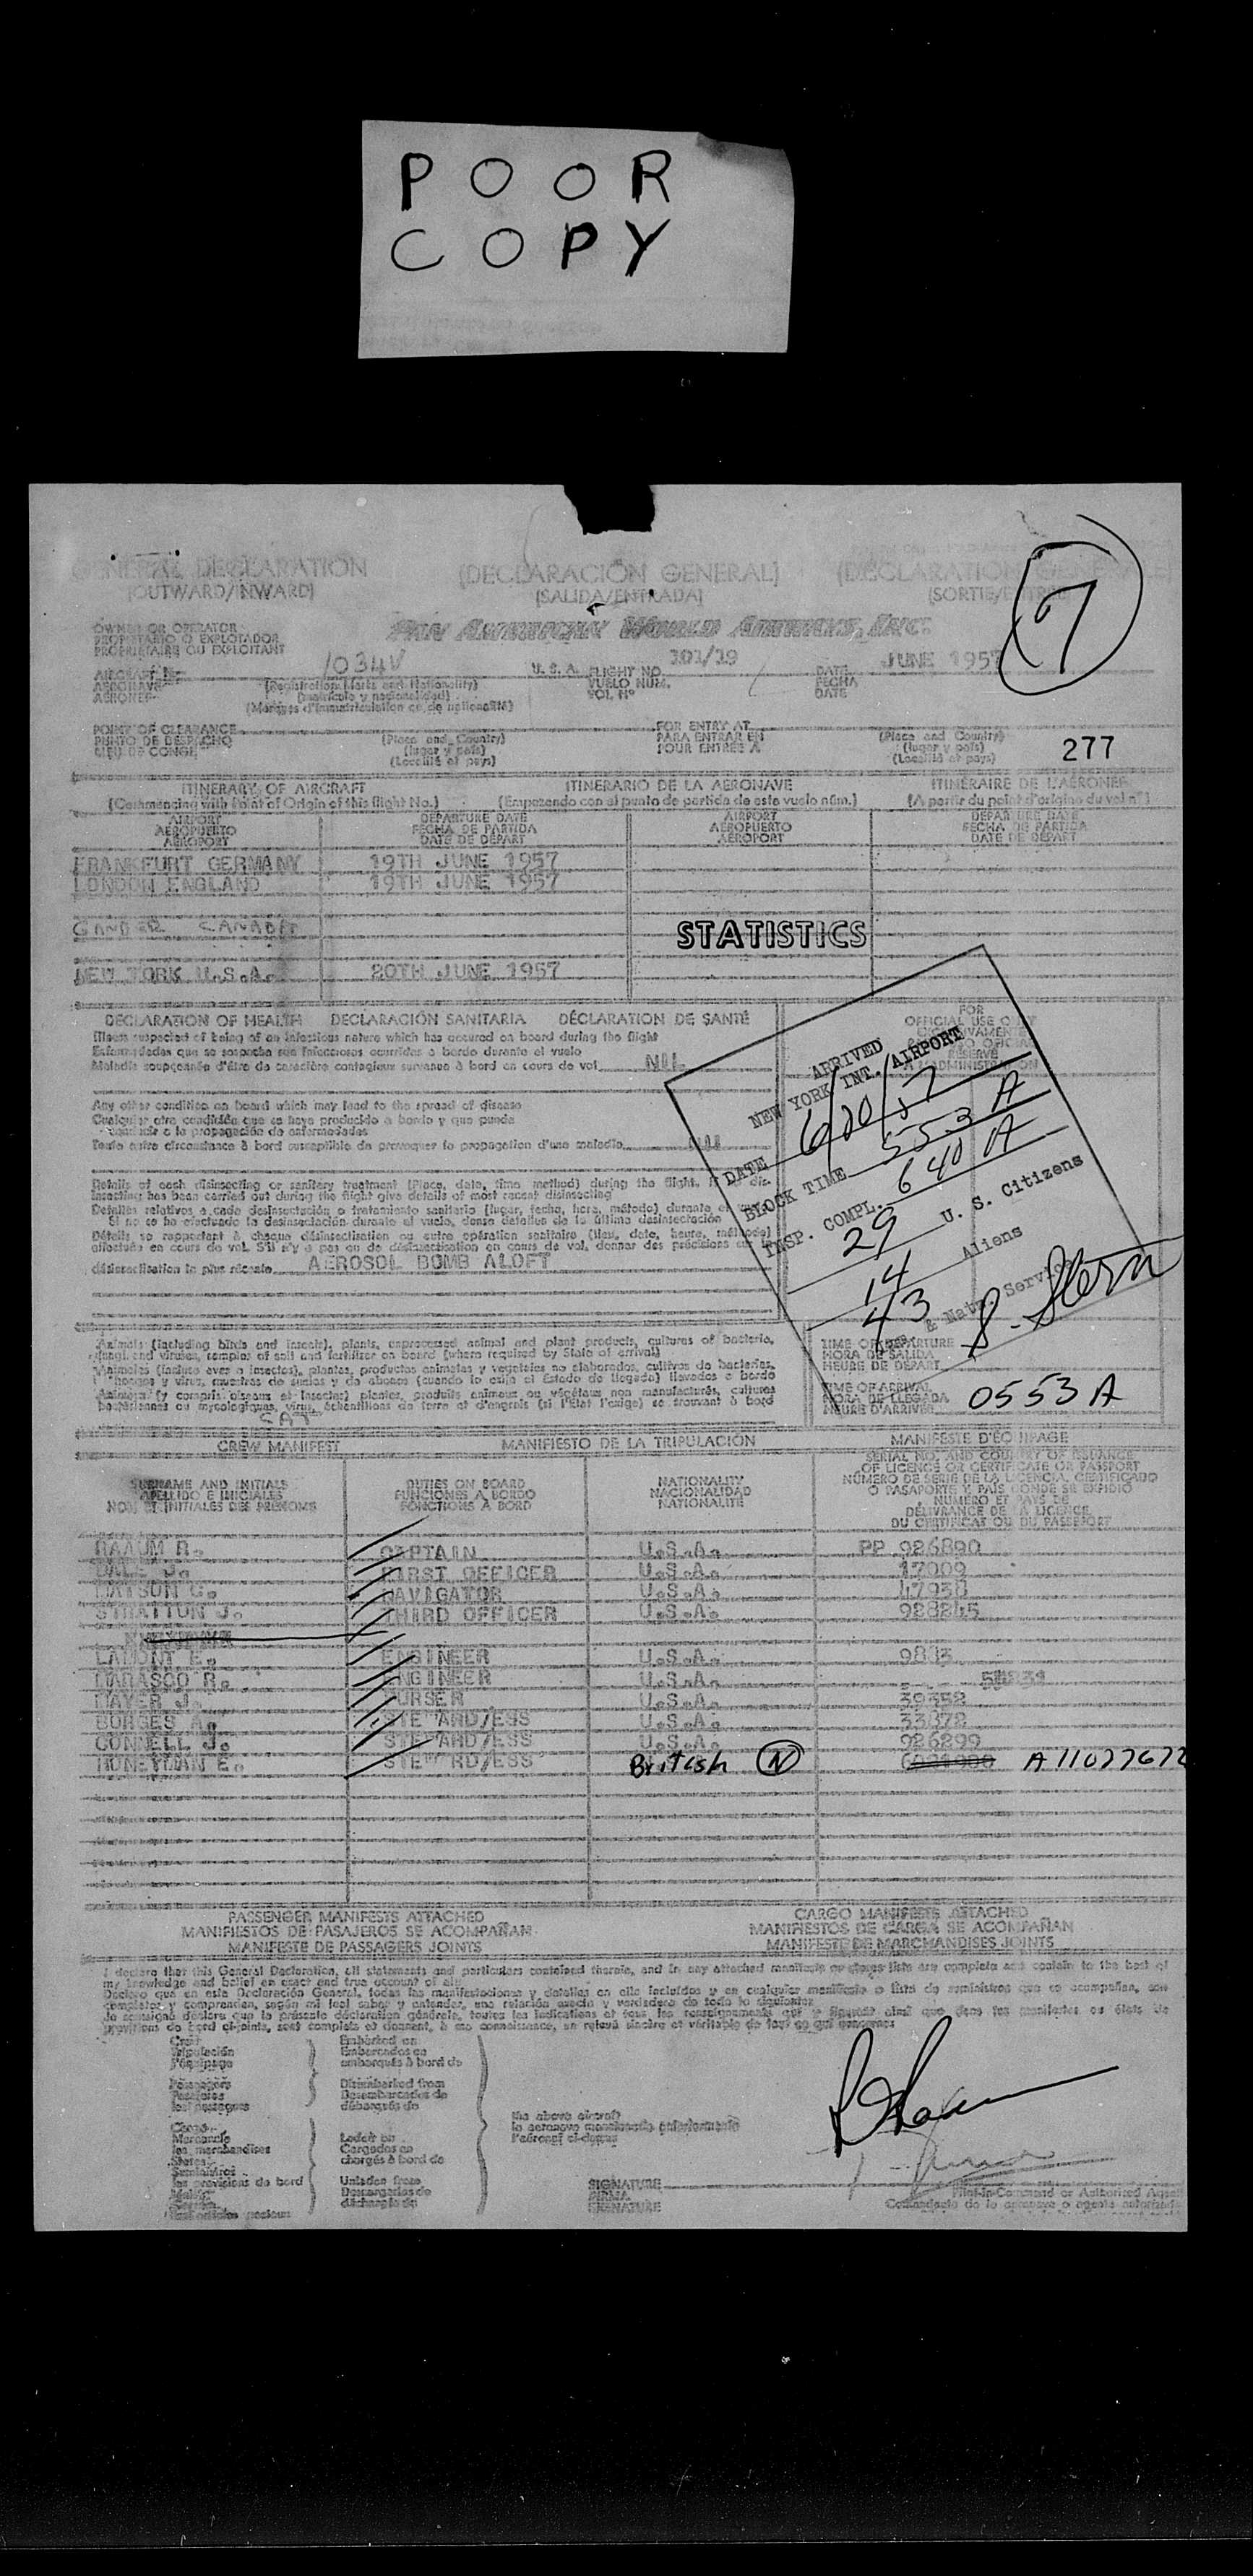 POOR
COPY
GENERAL DECLARATION (DECLARACIÓN GENERAL) (DECLARATION GENERALE)
(OUTWARD/INWARD) (SALIDA/ENTRADA) (SORTIE/ENTREE)
7
OWNER OR OPERATOR
PROPIETARIO O EXPLOTADOR
PROPRIETAIRE OU EXPLOITANT
PAN AMERICAN WORLD AIRWAYS, INC.
1034V U. S. A. FLIGHT NO. 101/19 DATE JUNE 1957
AERONAVE VUELO NUM. FECHA
AERONEF VOL Nº DATE
(Registration Marks and Nationality)
(matrícula y nacionalidad)
(Marques d'immatriculation et de nationalité)
POINT OF CLEARANCE FOR ENTRY AT
PUNTO DE DESPACHO (Place and Country) PARA ENTRAR EN (Place and Country)
LIEU DE CONGE (lugar y país) POUR ENTREE A (lugar y país)
(Localité et pays) (Localité et pays)
277
ITINERARY OF AIRCRAFT ITINERARIO DE LA AERONAVE ITINÉRAIRE DE L'AÉRONEF
(Commencing with Point of Origin of this flight No.) (Empezando con el punto de partida de este vuelo núm.) (A partir du point d'origine du vol nº)
AIRPORT DEPARTURE DATE AIRPORT DEPARTURE DATE
AEROPUERTO FECHA DE PARTIDA AEROPUERTO FECHA DE PARTIDA
AÉROPORT DATE DE DÉPART AÉROPORT DATE DE DÉPART
FRANKFURT GERMANY 19TH JUNE 1957
LONDON ENGLAND 19TH JUNE 1957
GANDER CANADA
STATISTICS
NEW YORK U.S.A. 20TH JUNE 1957
DECLARATION OF HEALTH DECLARACIÓN SANITARIA DÉCLARATION DE SANTÉ
Illness suspected of being of an infectious nature which has occured on board during the flight
Enfermedades que se sospecha son infecciosas ocurridas a bordo durante el vuelo
Maladie soupçonnée d'être de caractère contagieux survenue à bord en cours de vol NIL
Any other condition on board which may lead to the spread of disease
Cualquier otra condición que se haya producido a bordo y que pueda
conducir a la propagación de enfermedades
Toute autre circonstance à bord susceptible de provoquer la propagation d'une maladie NIL
Details of each disinsecting or sanitary treatment (Place, date, time method) during the flight. If no dis-
insecting has been carried out during the flight give details of most recent disinsecting
Detalles relativos a cada desinsectación o tratamiento sanitario (lugar, fecha, hora, método) durante el
Si no se ha efectuado la desinsectación durante el vuelo, dense detalles de la última desinsectación
Détails se rapportant à chaque désinsectisation ou autre opération sanitaire (lieu, date, heure, méthode)
effectués en cours de vol. S'il n'y a pas eu de désinsectisation en cours de vol, donner des précisions
désinsectisation la plus récente AEROSOL BOMB ALOFT
FOR
OFFICIAL USE ONLY
ARRIVED
NEW YORK INT. AIRPORT
DATE 6/20/57
BLOCK TIME 553 A
INSP. COMPL. 640 A
29 U. S. Citizens
14 Aliens
43
S. Stern
Animals (including birds and insects), plants, unprocessed animal and plant products, cultures of bacteria,
fungi and viruses, samples of soil and fertilizer on board (where required by State of arrival)
Animales (incluso aves e insectos), plantas, productos animales y vegetales no elaborados, cultivos de bacterias,
hongos y virus, muestras de suelos y de abonos (cuando lo exija el Estado de llegada) llevados a bordo
Animaux (y compris oiseaux et insectes) plantes, produits animaux ou végétaux non manufacturés, cultures
bactériennes ou mycologiques, virus, échantillons de terre et d'engrais (si l'État l'exige) se trouvant à bord
CAT
TIME OF DEPARTURE
HORA DE SALIDA
HEURE DE DÉPART
TIME OF ARRIVAL
HORA DE LLEGADA
HEURE D'ARRIVEE 0553 A
CREW MANIFEST MANIFIESTO DE LA TRIPULACIÓN MANIFESTE D'ÉQUIPAGE
SURNAME AND INITIALS DUTIES ON BOARD NATIONALITY SERIAL NO. AND COUNTRY OF ISSUANCE
APELLIDO E INICIALES FUNCIONES A BORDO NACIONALIDAD OF LICENCE OR CERTIFICATE OR PASSPORT
NOM ET INITIALES DES PRÉNOMS FONCTIONS A BORD NATIONALITÉ NÚMERO DE SERIE DE LA LICENCIA, CERTIFICADO
O PASAPORTE Y PAÍS DONDE SE EXPIDIÓ
NUMÉRO ET PAYS DE
DÉLIVRANCE DE LA LICENCE
DU CERTIFICAT OU DU PASSEPORT
RAAUM R. CAPTAIN U.S.A. PP 926890
DALE FIRST OFFICER U.S.A. 17009
MATSON G. NAVIGATOR U.S.A. 47938
STRATTON J. THIRD OFFICER U.S.A. 928245
LAMONT E. ENGINEER U.S.A. 9883
MARASCO R. ENGINEER U.S.A.
MAYER J. PURSER U.S.A. 39352
BORGES A. STEWARD/ESS U.S.A. 33872
CONNELL J. STEWARD/ESS U.S.A. 926299
HONEYMAN E. STEWARD/ESS British N A11077672
PASSENGER MANIFESTS ATTACHED CARGO MANIFESTS ATTACHED
MANIFIESTOS DE PASAJEROS SE ACOMPAÑAN MANIFIESTOS DE CARGA SE ACOMPAÑAN
MANIFESTE DE PASSAGERS JOINTS MANIFESTE DE MARCHANDISES JOINTS
I declare that this General Declaration, all statements and particulars contained therein, and in any attached manifests or stores lists are complete and contain to the best of
my knowledge and belief an exact and true account of all:
Declaro que en esta Declaración General, todas las manifestaciones y detalles en ella incluídos y en cualquier manifiesto o lista de suministros que se acompañan, son
completos y comprenden, según mi leal saber y entender, una relación exacta y verdadera de todo lo siguiente:
Crew Embarked on
Tripulación Embarcados en
l'équipage embarqués à bord de
Passengers Disembarked from
Pasajeros Desembarcados de
les passagers débarqués de
the above aircraft
la aeronave mencionada anteriormente
l'aéronef ci-dessus
Cargo
Mercancía Laden on
les marchandises Cargados en
Stores chargés à bord de
Suministros
les provisions de bord Unladen from
Descargados de
déchargés de
SIGNATURE
FIRMA
SIGNATURE
Pilot-in-Command or Authorized Agent
Comandante de la aeronave o agente autorizado